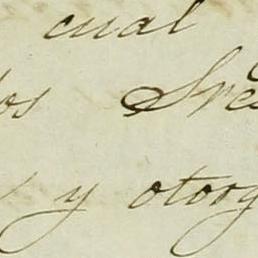 cual
os Sres
y otorg